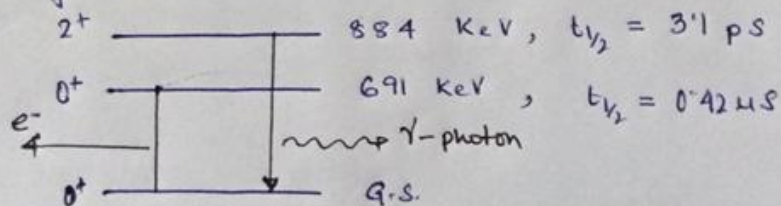 2+ 884 KeV, t1/2 = 3·1 ps
0+ 691 KeV, t1/2 = 0·42 μs
e-
γ-photon
0+ G.S.